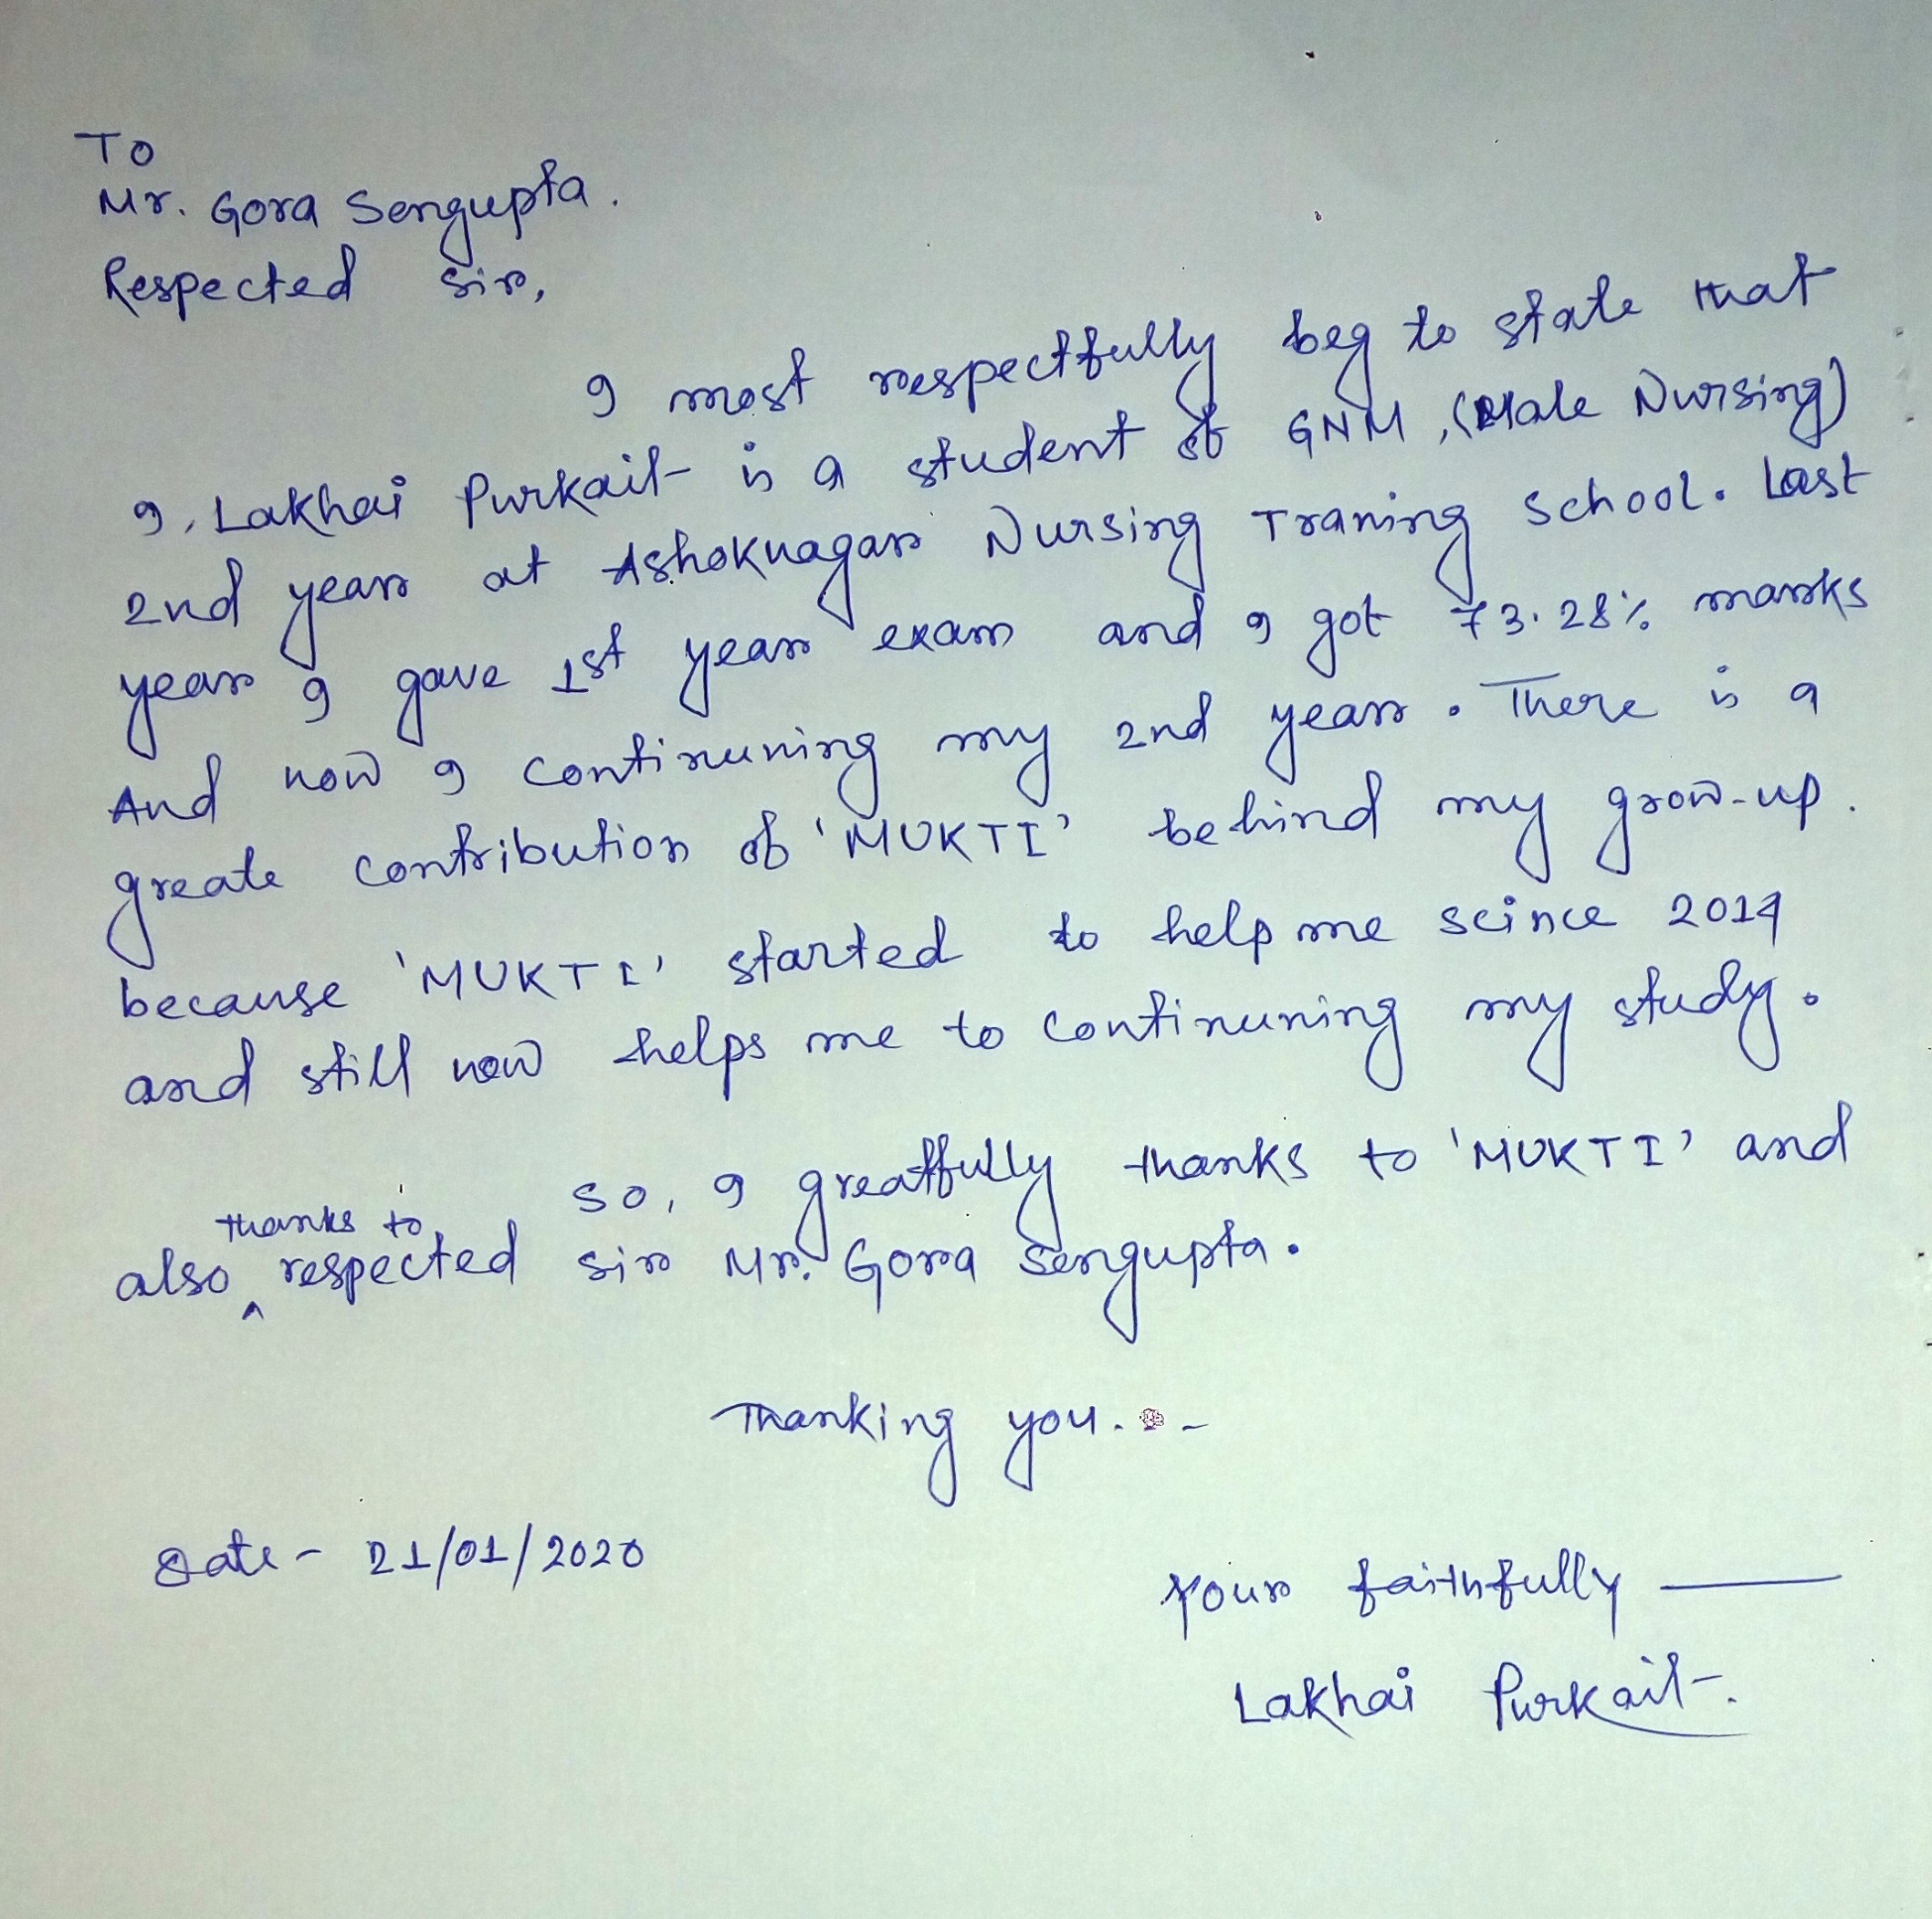 To
Mr. Gora Sengupta.
Respected Sir,
I most respectfully beg to state that
I, Lakhai Purkait is a student of GNM, (Male Nursing)
2nd year at Ashoknagar Nursing Traning School. Last
year I gave 1st year exam and I got 73.28% marks
And now I continuning my 2nd year. There is a
greate contribution of 'MUKTI' behind my grow-up.
because 'MUKTI' started to help me scince 2014
and still now helps me to continuning my study.
So, I greatfully thanks to 'MUKTI' and
also thanks to respected sir Mr. Gora Sengupta.
Thanking you...-
Date - 21/01/2020
Your faithfully —
Lakhai Purkait.